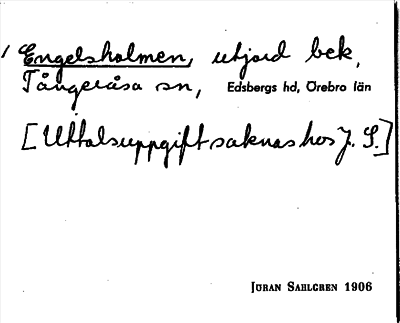 Engelsholmen, utjord bek.,
Tångeråsa sn, Edsbergs hd, Örebro län
[Uttalsuppgift saknas hos J. S.]
JÖRAN SAHLGREN 1906